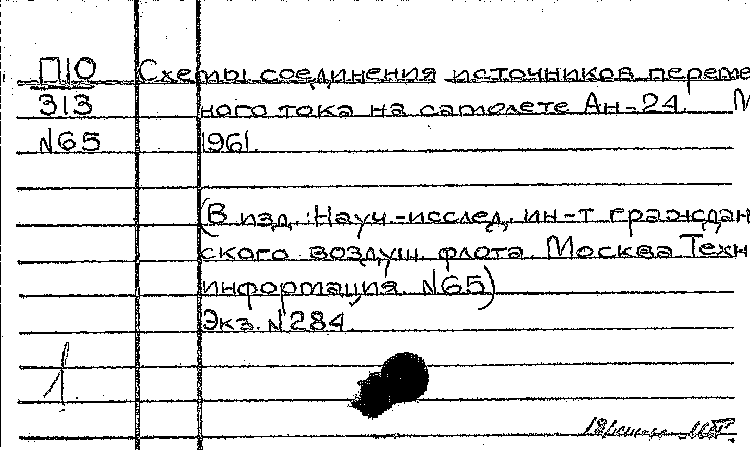 П10 Схемы соединения источников переме
313 ного тока на самолете Ан-24. М
N65 1961.
(В изд.: Науч.-исслед. ин-т граждан
ского воздуш. флота. Москва. Техн
информация. N65)
Экз. N284.
1